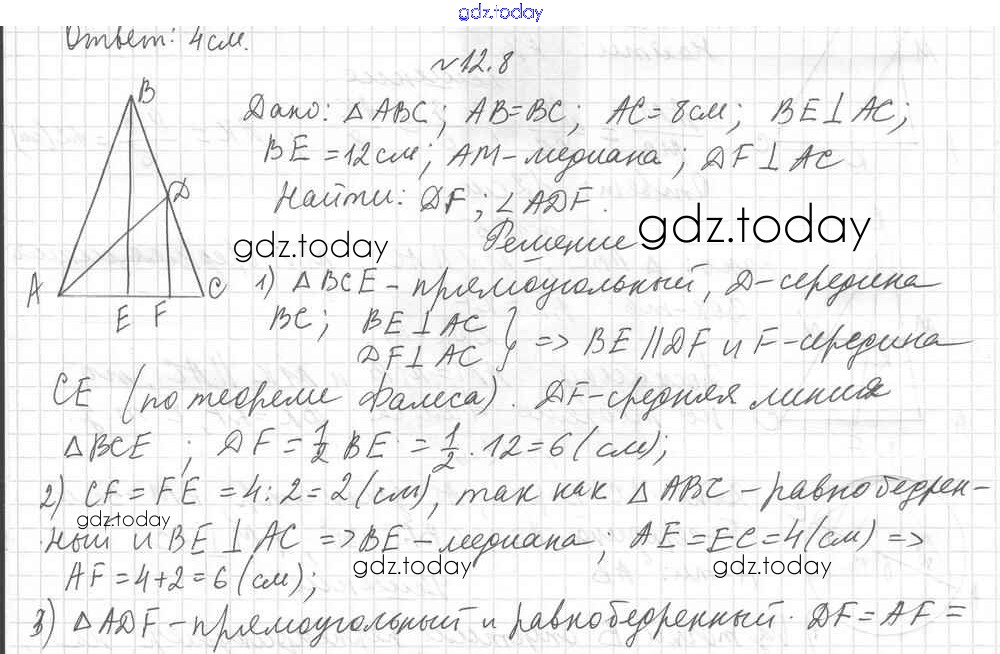 gdz.today
Ответ: 4 см.
№12.8
B
Дано: △ABC; AB=BC; AC=8см; BE⊥AC;
BE=12см; AM-медиана; DF⊥AC
Найти: DF; ∠ADF.
D
gdz.today
Решение
gdz.today
A
C
E
F
1) △BCE-прямоугольный, D-середина
BC; BE⊥AC
DF⊥AC } => BE||DF и F-середина
CE (по теореме Фалеса). DF-средняя линия
△BCE; DF=1/2 BE=1/2·12=6(см);
2) CF=FE=4:2=2(см), так как △ABC-равнобедрен-
gdz.today
ный и BE⊥AC =>BE-медиана; AE=EC=4(см)=>
AF=4+2=6(см);
gdz.today
gdz.today
3) △ADF-прямоугольный и равнобедренный. DF=AF=